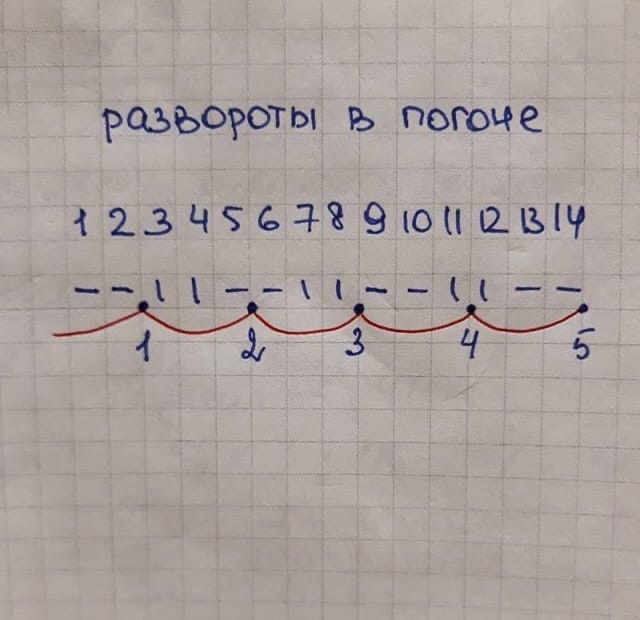 развороты в погоне
1 2 3 4 5 6 7 8 9 10 11 12 13 14
– – | | – – | | – – | | – –
1 2 3 4 5